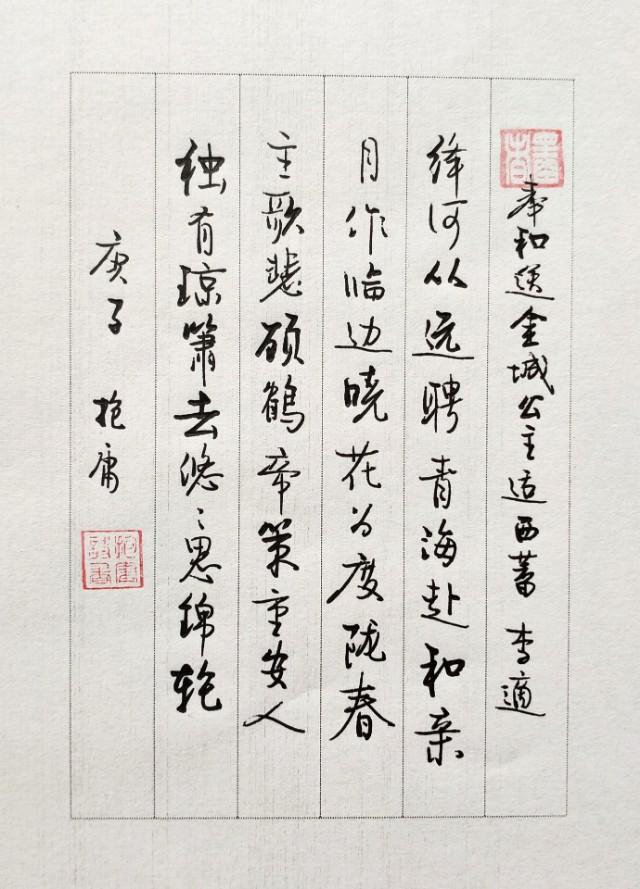 奉和送金城公主适西蕃 李適
绛河从远聘青海赴和亲
月作临边晓花为度陇春
主歌悲顾鹤帝策重安人
独有琼箫去悠〻思锦轮
庚子 抱庸